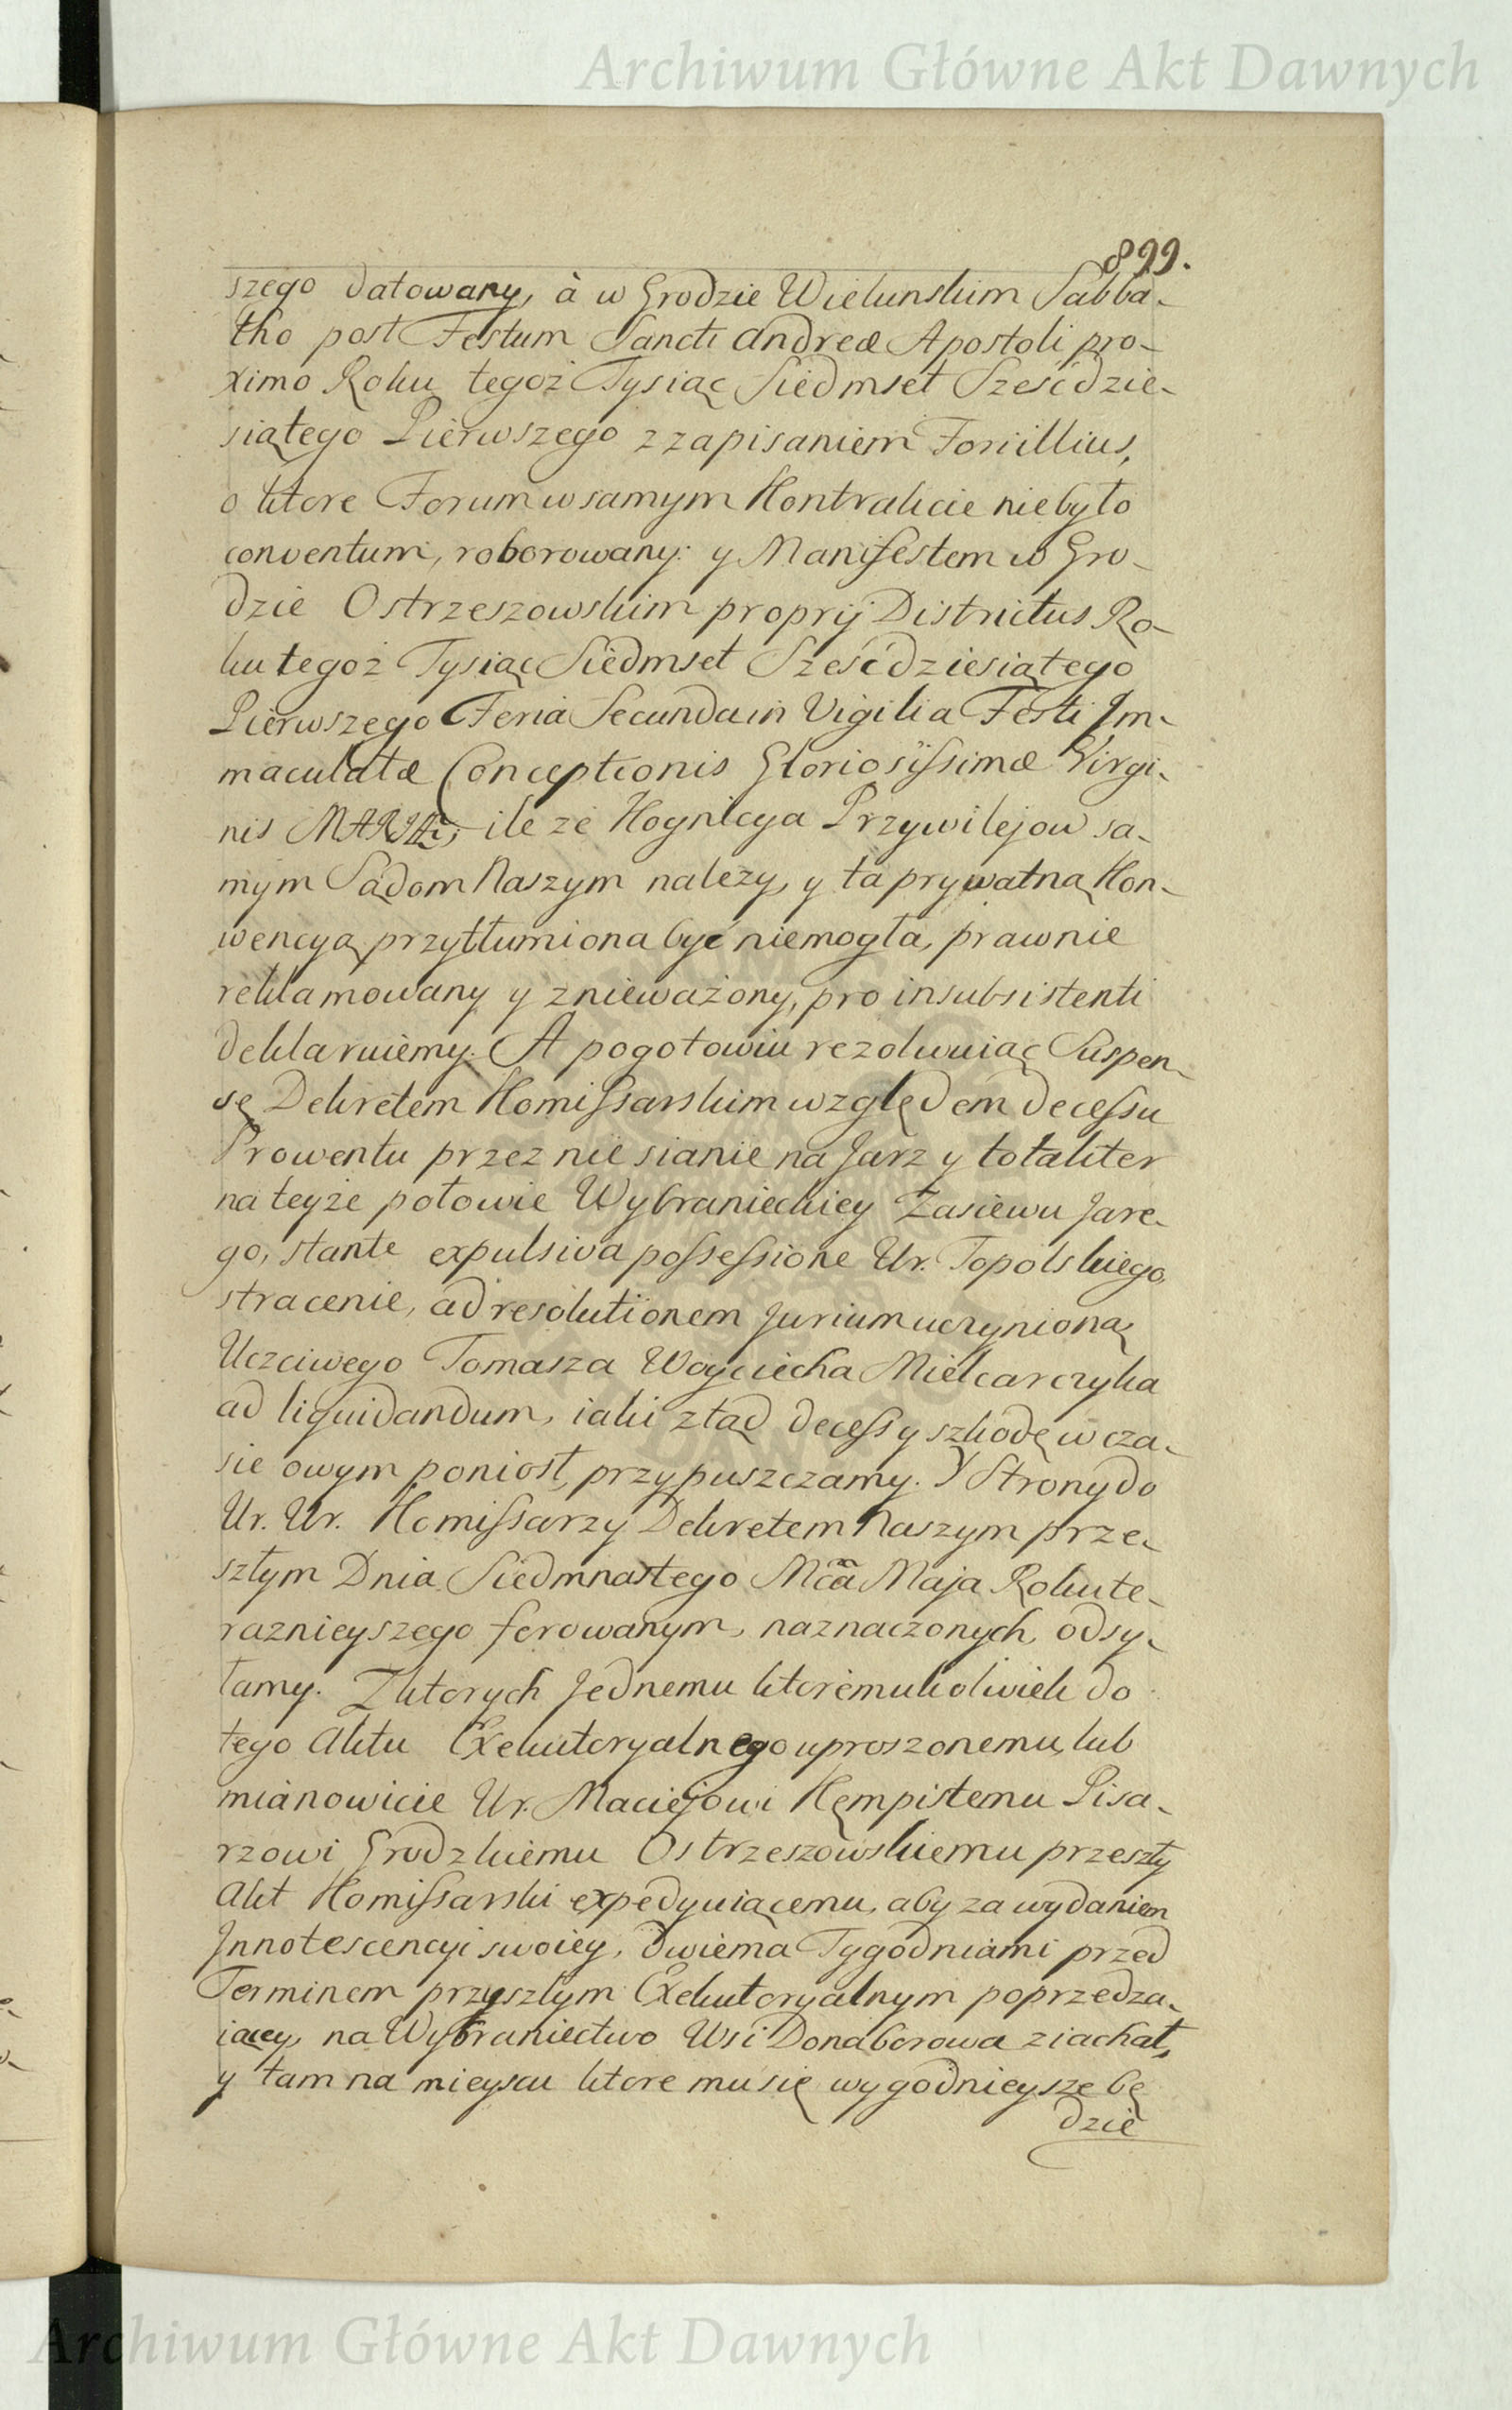 Archiwum Główne Akt Dawnych
899.
szego datowany, à w Grodzie Wielunskim Sabba-
tho post Festum Sancti Andreæ Apostoli pro-
ximo Roku tegoż Tysiąc Siedmset Sześćdzie-
siątego Pierwszego z zapisaniem Fori illius,
o ktore Forum w samym Kontrakcie niebyło
conventum, roborowany: y Manifestem w Gro-
dzie Ostrzeszowskim proprij Districtus Ro-
ku tegoż Tysiąc Siedmset Sześćdziesiątego
Pierwszego Feria Secunda in Vigilia Festi Jm-
maculatæ Conceptionis Gloriosissimæ Virgi-
nis MARIÆ, ile że Kognicya Przywilejow sa-
mym Sądom Naszym należy, y tą prywatną Kon-
wencyą przytłumiona być niemogła, prawnie
reklamowany y znieważony, pro insubsistenti
deklaruiemy. A pogotowiu rezolwuiąc Suspen-
sę Dekretem Komissarskim względem decessu
Prowentu przez nie sianie na Jarz y totaliter
na teyże połowie Wybranieckiey Zasiewu Jare-
go, stante expulsiva possessione Ur. Topolskiego
stracenie, ad resolutionem Jurium uczynioną
Uczciwego Tomasza Woyciecha Mielcarczyka
ad liquidandum, iaki ztąd decess y szkodę w cza-
sie owym poniosł, przypuszczamy. Y Strony do
Ur. Ur. Komissarzy Dekretem Naszym prze-
szłym Dnia Siedmnastego Mca Maja Roku te-
raznieyszego ferowanym, naznaczonych, odsy-
łamy. Z ktorych Jednemu ktoremukolwiek do
tego Aktu Exekutoryalnego uproszonemu, lub
mianowicie Ur. Maciejowi Kępistemu Pisa-
rzowi Grodzkiemu Ostrzeszowskiemu przeszły
Akt Komissarski expedyuiącemu, aby za wydaniem
Jnnotescencyi swoiey, dwiema Tygodniami przed
Terminem przyszłym Exekutoryalnym poprzedza-
iącey, na Wybraniectwo Wsi Donaborowa ziachał,
y tam na mieyscu ktore mu się wygodnieysze bę
dzie
Archiwum Główne Akt Dawnych